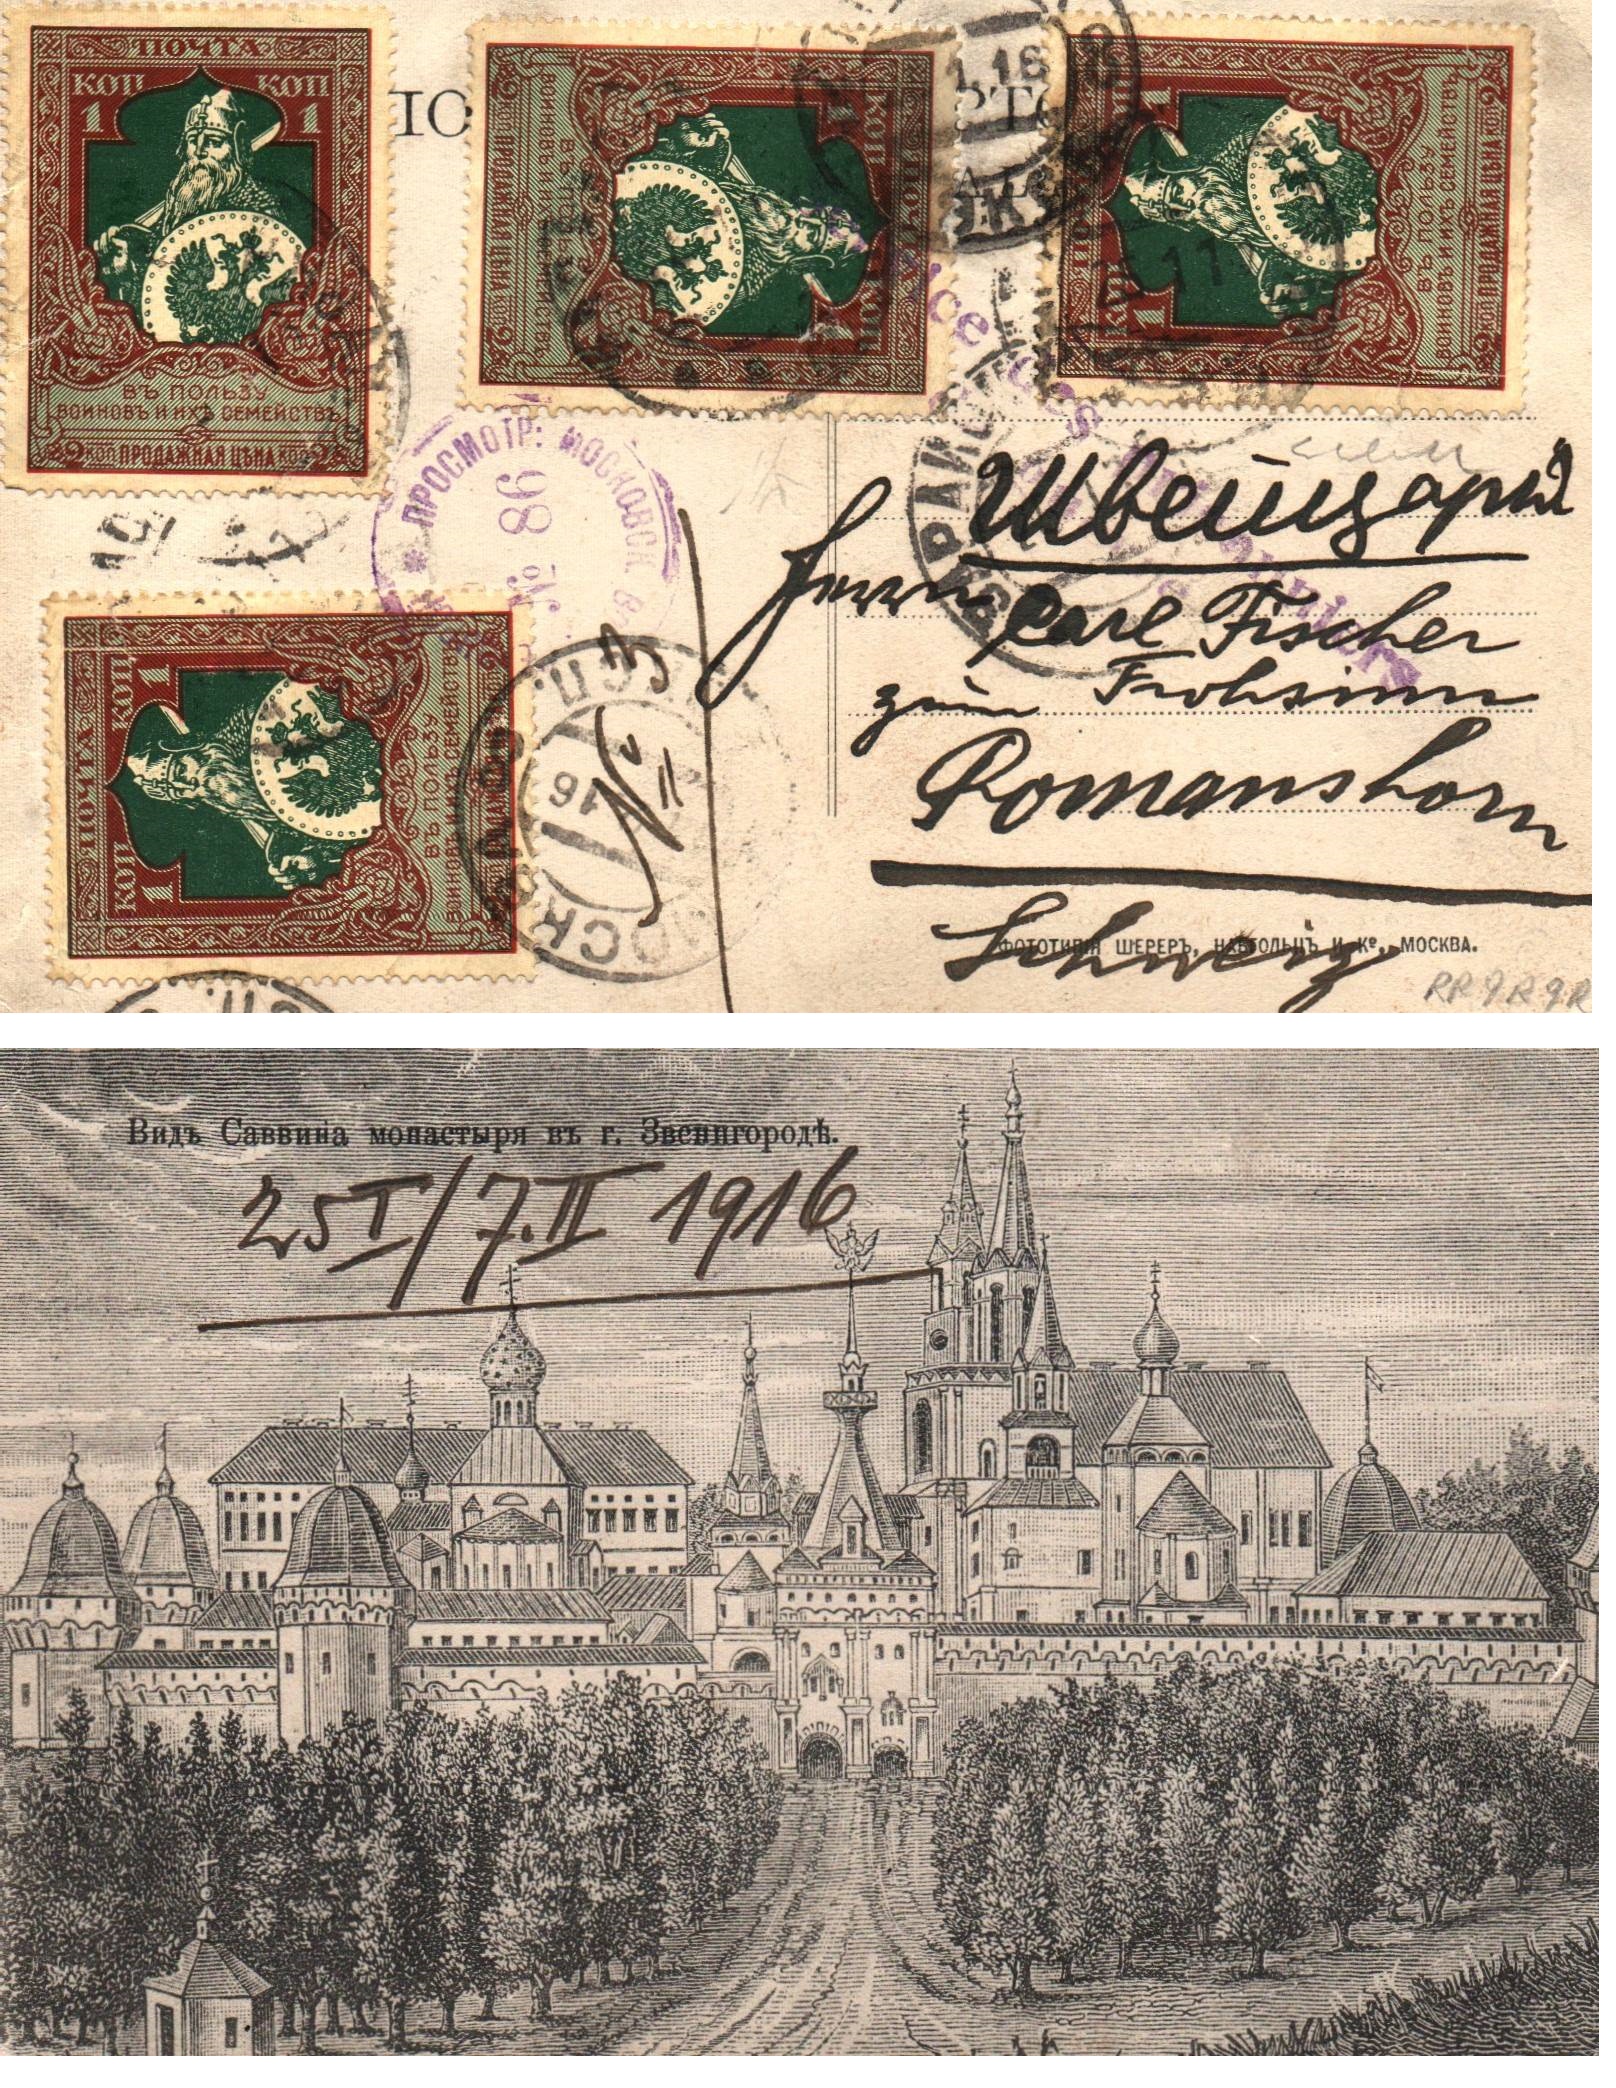 ПОЧТА
КОП КОП
1 1
ВЪ ПОЛЬЗУ
ВОИНОВЪ И ИХЪ СЕМЕЙСТВЪ
2 КОП ПРОДАЖНАЯ ЦѢНА КОП 2
ПОЧТА
КОП КОП
1 1
ВЪ ПОЛЬЗУ
ВОИНОВЪ И ИХЪ СЕМЕЙСТВЪ
2 КОП ПРОДАЖНАЯ ЦѢНА КОП 2
ПОЧТА
КОП
1 1
ВЪ ПОЛЬЗУ
ВОИНОВЪ И ИХЪ СЕМЕЙСТВЪ
КОП ПРОДАЖНАЯ ЦѢНА КОП 2
ПОЧТА
КОП КОП
1 1
ВЪ ПОЛЬЗУ
ВОИНОВЪ И ИХЪ СЕМЕЙСТВЪ
ПРОСМОТР: МОСКОВСК.
№ 86
МОСКВА
16
№
Швейцарія
Herrn Carl Fischer
zum Frohsinn
Romanshorn
Schweiz
ФОТОТИПІЯ ШЕРЕРЪ, НАБГОЛЬЦЪ И Кº., МОСКВА.
Видъ Саввина монастыря въ г. Звенигородѣ.
25 I/7. II 1916